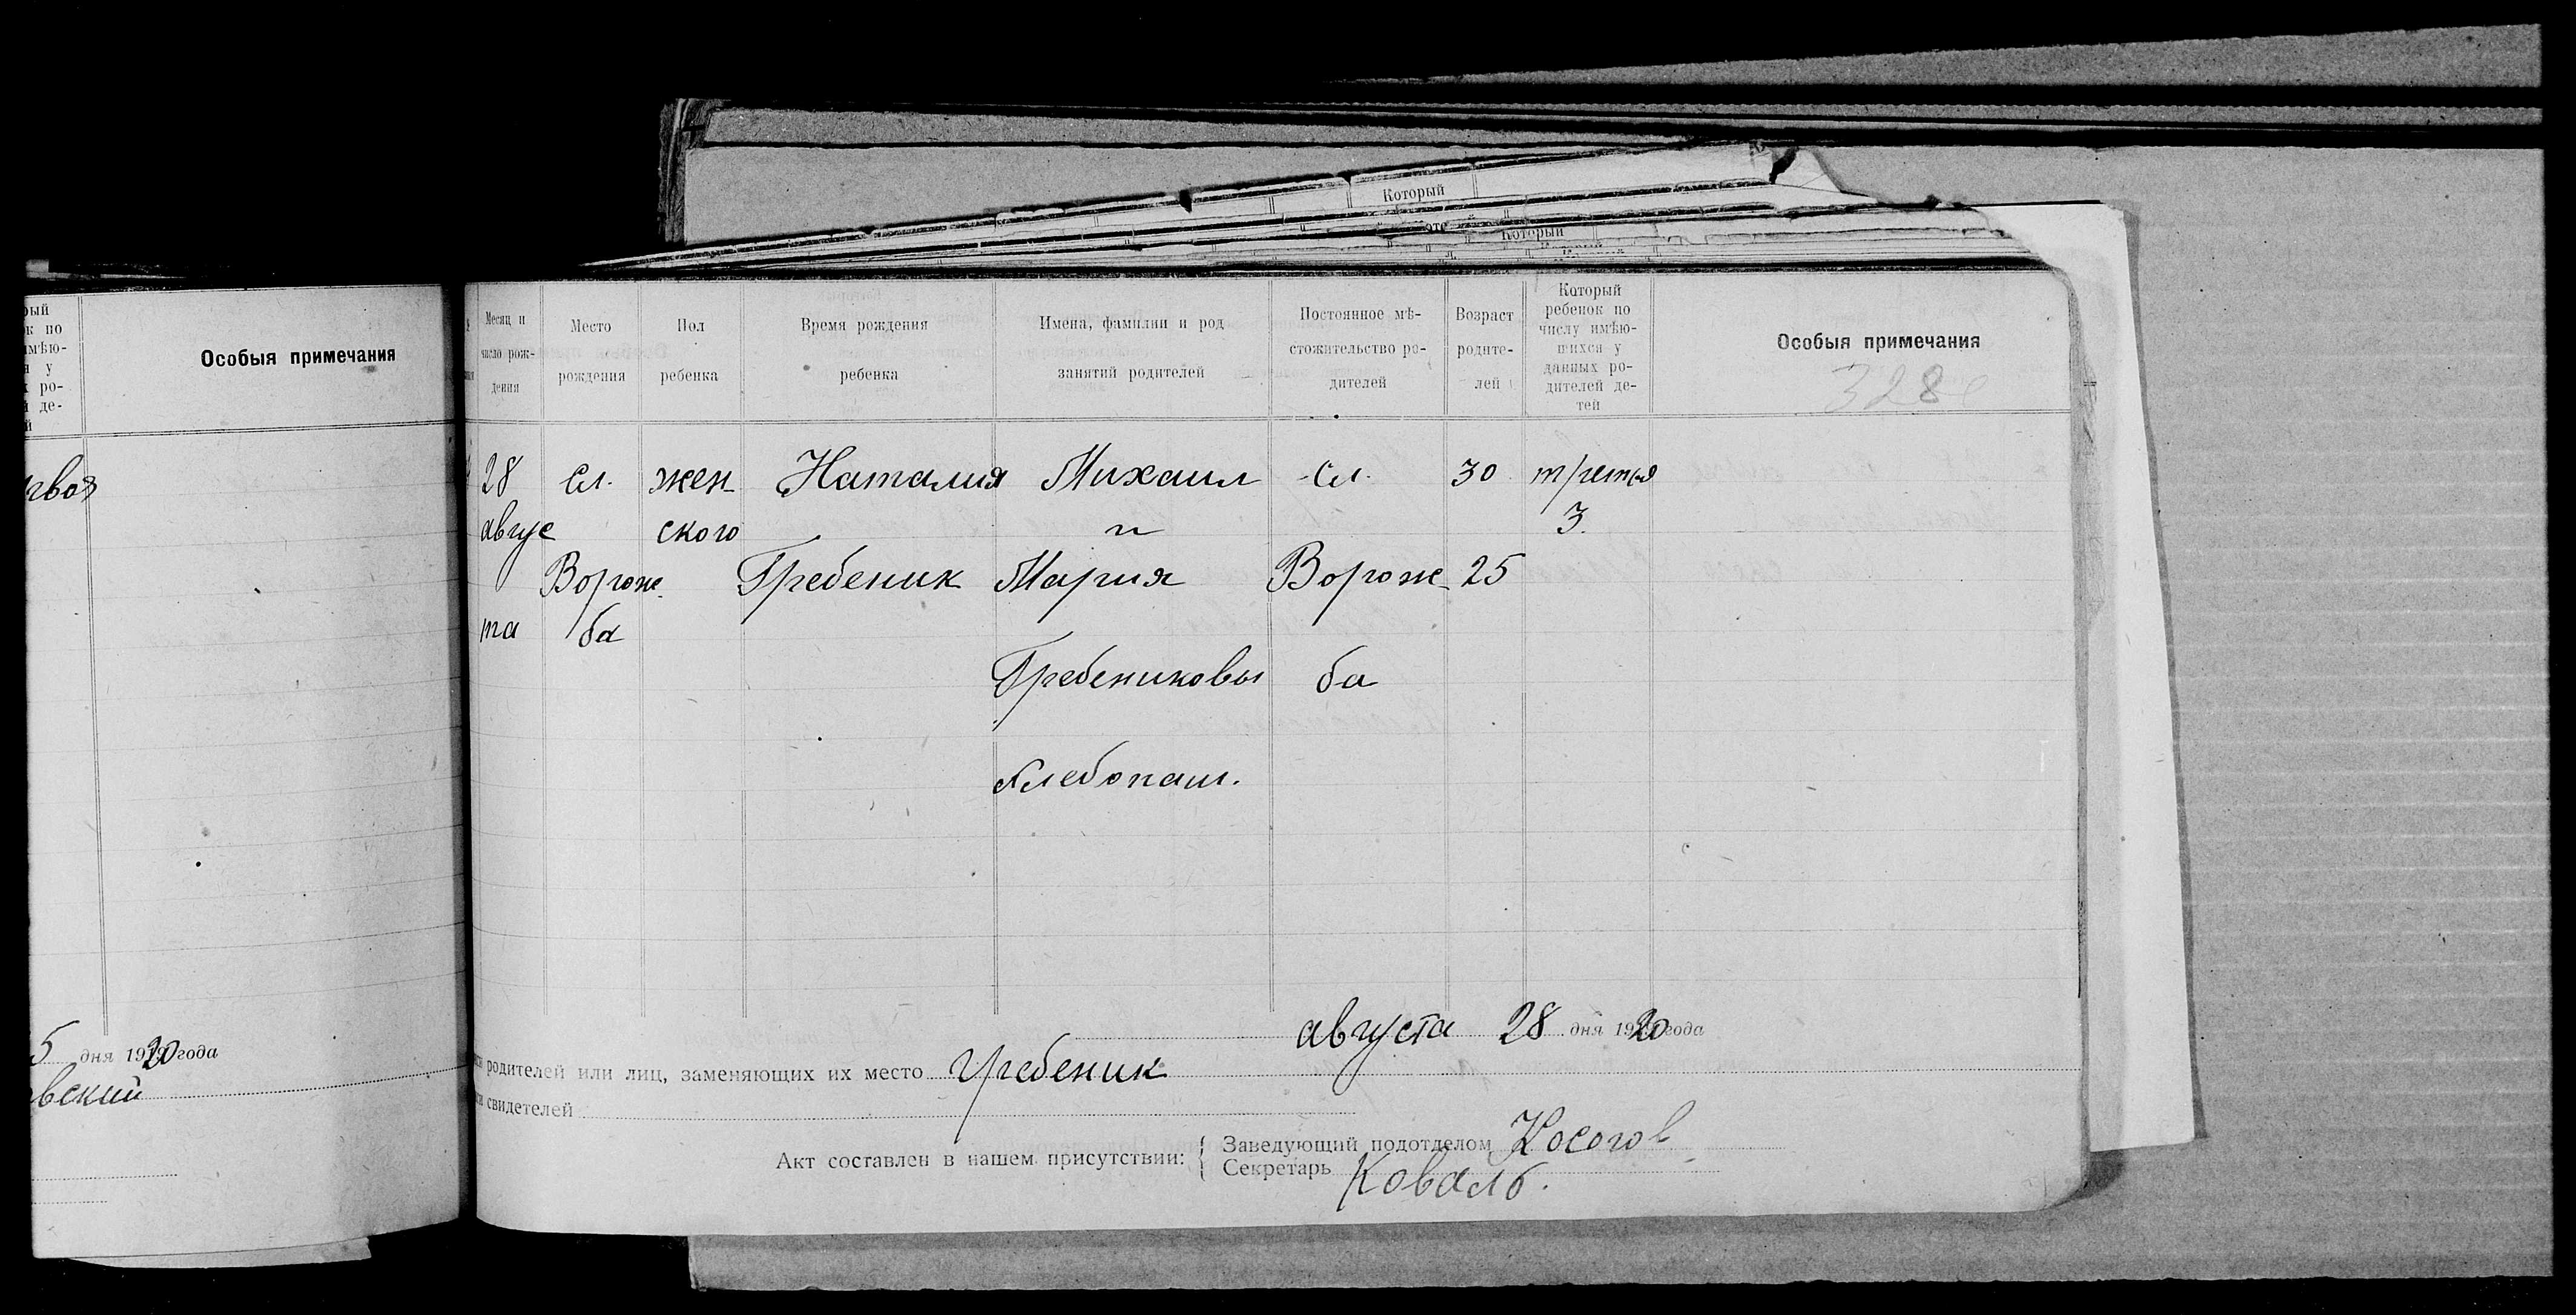 Который
Который
рый
к по
имѣю-
я у
х ро-
й де-
й
Особыя примечания
рвоя
5 дня 1920 года
вский
Месяц и
число рож-
дения
Место
рождения
Пол
ребенка
Время рождения
ребенка
Имена, фамилии и род
занятий родителей
Постоянное мѣ-
стожительство ро-
дителей
Возраст
родите-
лей
Который
ребенок по
числу имѣю-
щихся у
данных ро-
дителей де-
тей
Особыя примечания
328
28 Сл. жен- Наталия Михаил Сл. 30 третья
авгус ского и 3.
Ворож- Гребеник Мария Ворож- 25
та ба
Гребениковы ба
Хлебопаш.
августа 28 дня 1920 года
родителей или лиц, заменяющих их место Гребеник
свидетелей
Акт составлен в нашем присутствии: { Заведующий подотделом Косогов
Секретарь Коваль.